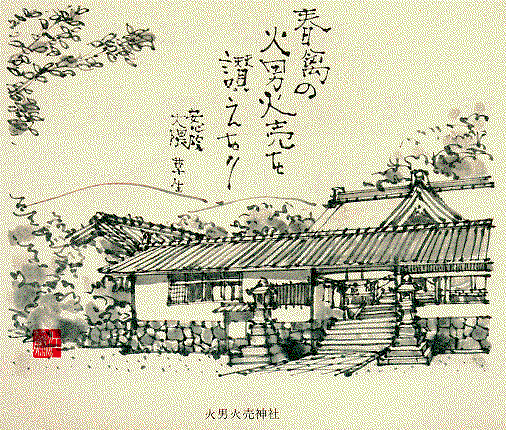 春禽の
火男火売を
讃えをり
安心院
大隈 草生
火男火売神社